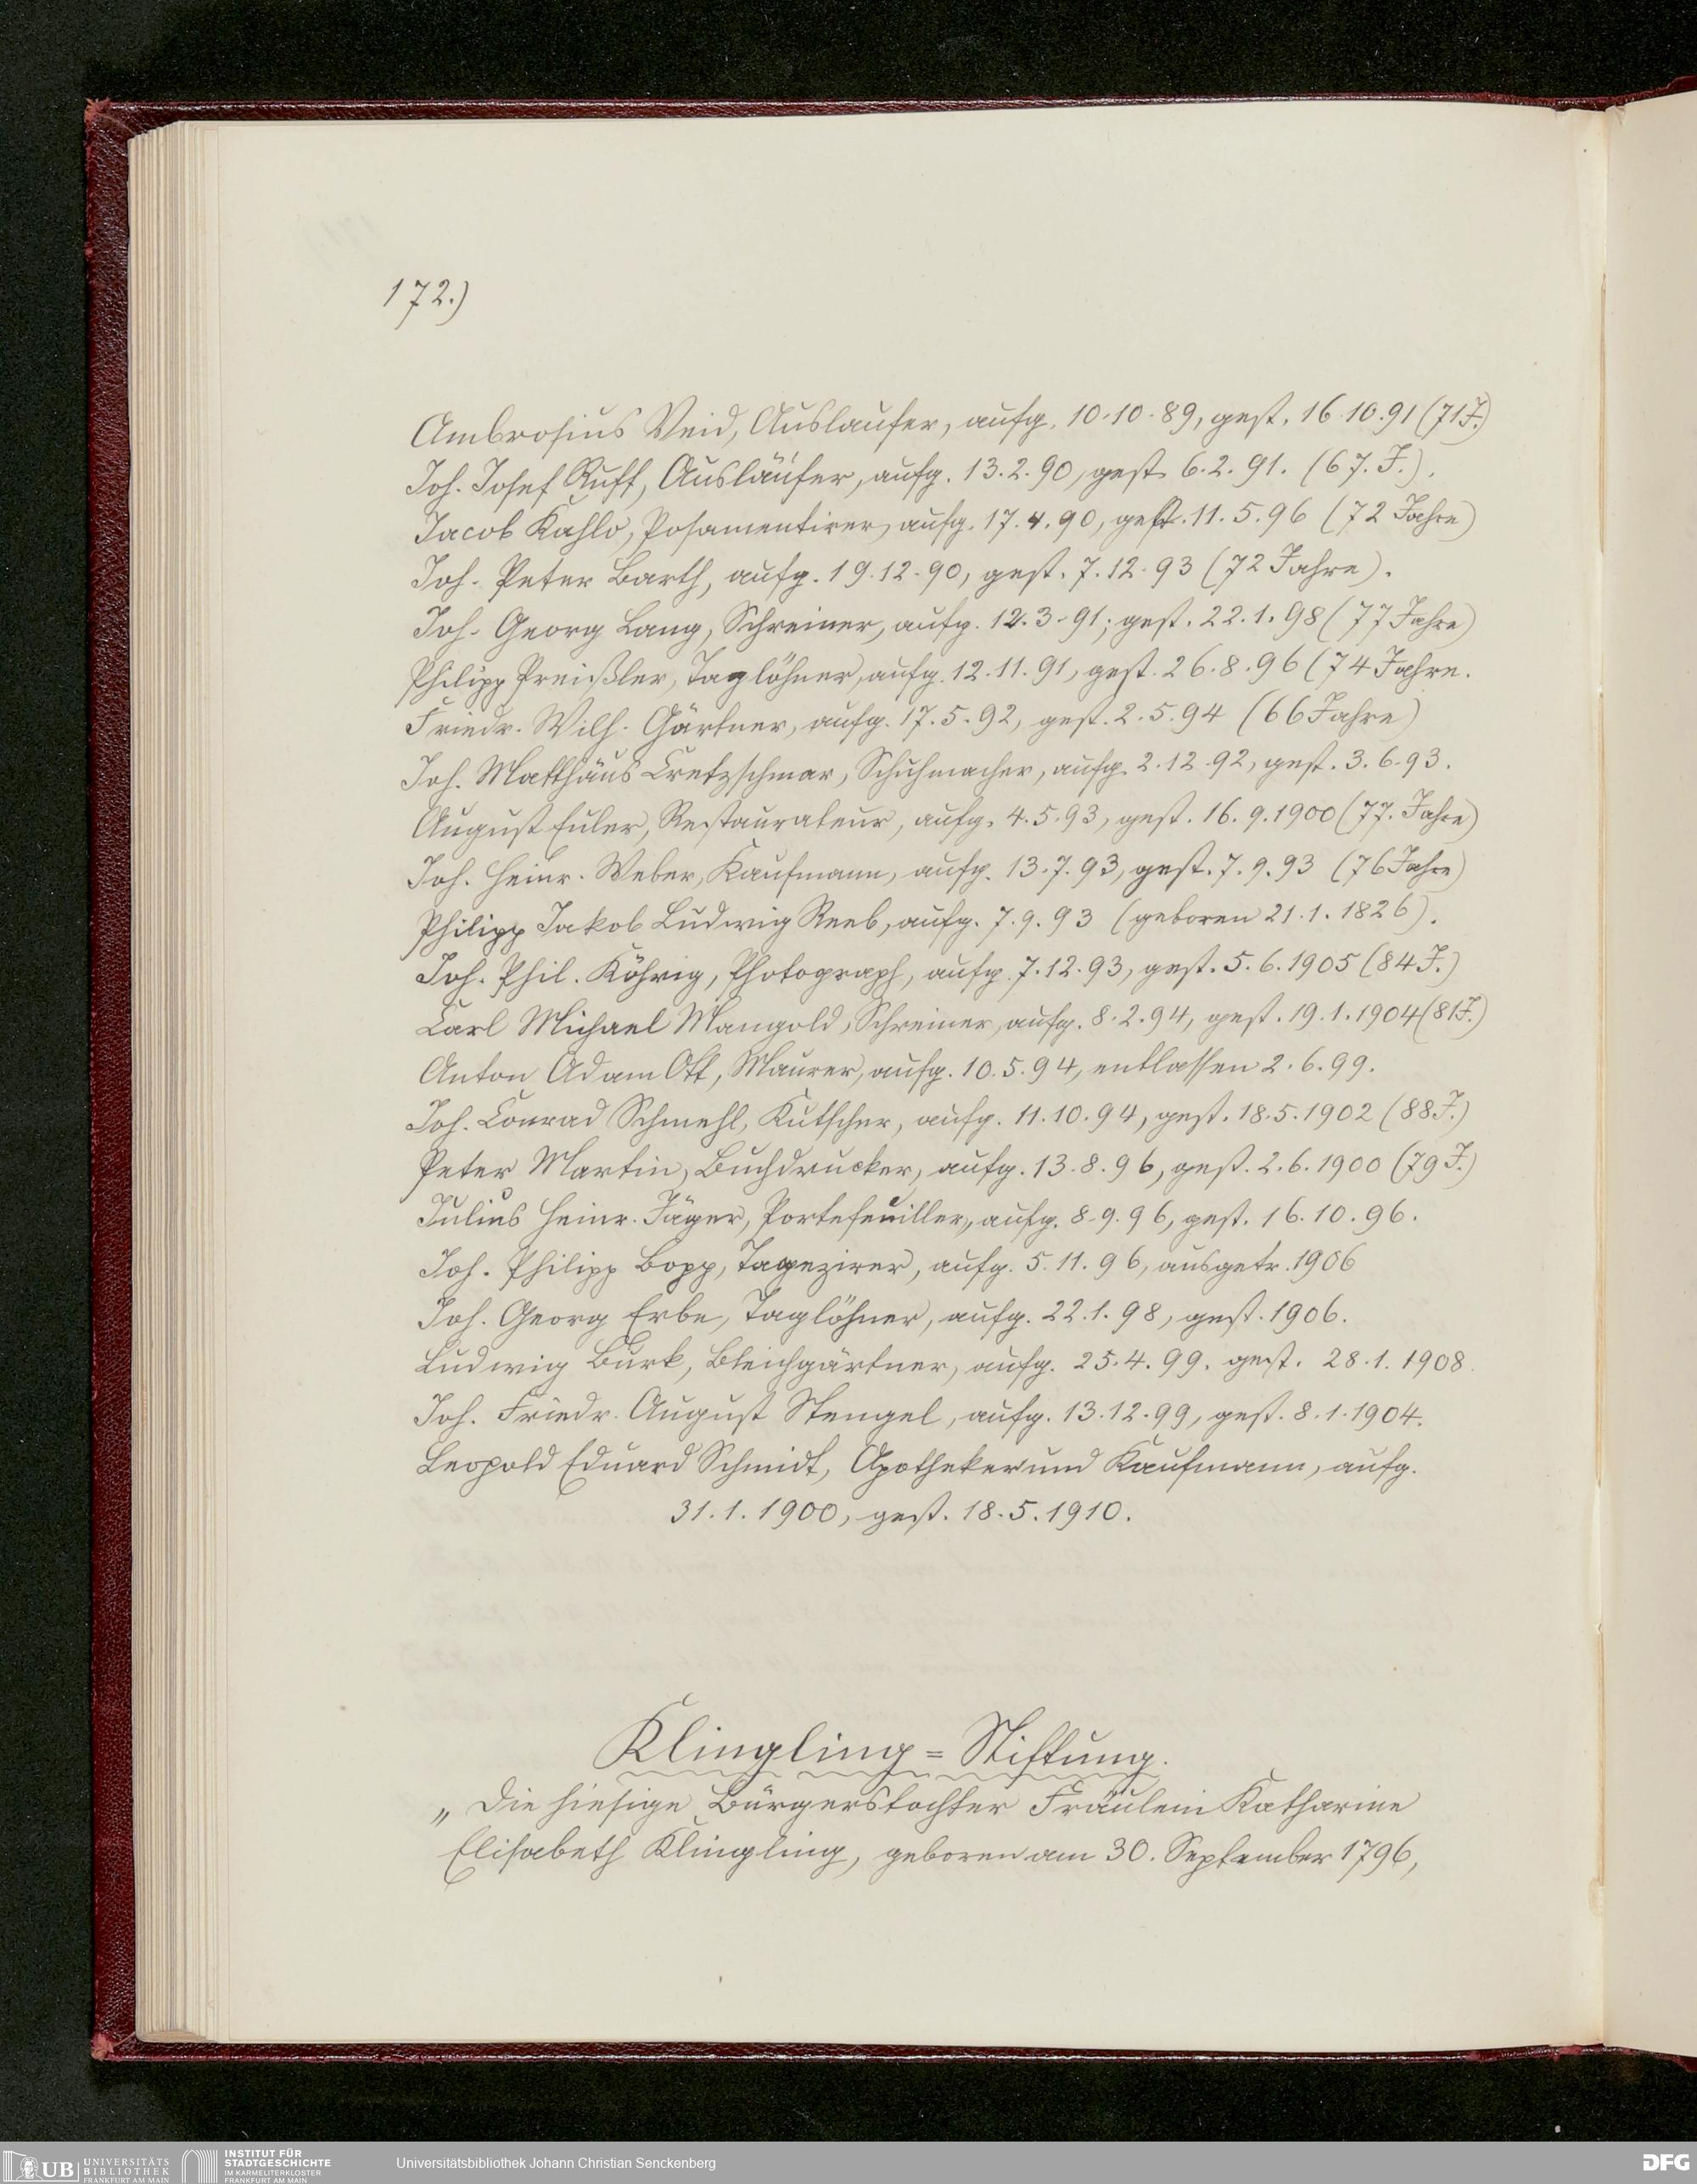 172.)
Ambrosius Veid, Auslaufer, aufg. 10.10.89, gest. 16.10.91 (71 J.)
Joh. Josef Ruff, Ausläufer, aufg. 13.2.90, gest. 6.2.91. (67. J.).
Jacob Kahlo, Posamentirer, aufg. 17.4.90, gest. 11.5.96 (72 Jahre)
Joh. Peter Barth, aufg. 19.12.90, gest. 7.12.93 (72 Jahre).
Joh. Georg Lang, Schreiner, aufg. 12.3.91; gest. 22.1.98 (77 Jahre)
Philipp Preißler, Taglöhner, aufg. 12.11.91, gest. 26.8.96 (74 Jahre.
Friedr. Wilh. Gärtner, aufg. 17.5.92, gest. 2.5.94 (66 Jahre)
Joh. Matthäus Cretzschmar, Schuhmacher, aufg. 2.12.92, gest. 3.6.93.
August Euler, Restaurateur, aufg. 4.5.93, gest. 16.9.1900 (77. Jahre)
Joh. Heinr. Weber, Kaufmann, aufg. 13.7.93, gest. 7.9.93 (76 Jahre)
Philipp Jakob Ludwig Reeb, aufg. 7.9.93 (geboren 21.1.1826).
Joh. Phil. Köhrig, Photograph, aufg. 7.12.93, gest. 5.6.1905 (84 J.)
Carl Michael Mangold, Schreiner, aufg. 8.2.94, gest. 19.1.1904 (81 J.)
Anton Adam Ott, Maurer, aufg. 10.5.94, entlassen 2.6.99.
Joh. Conrad Schmehl, Kutscher, aufg. 11.10.94, gest. 18.5.1902 (88 J.)
Peter Martin, Buchdrucker, aufg. 13.8.96, gest. 2.6.1900 (79 J.)
Julius Heinr. Jäger, Portefeuiller, aufg. 8.9.96, gest. 16.10.96.
Joh. Philipp Bopp, Tapezirer, aufg. 5.11.96, ausgetr. 1906
Joh. Georg Erbe, Taglöhner, aufg. 22.1.98, gest. 1906.
Ludwig Burk, Bleichgärtner, aufg. 25.4.99. gest. 28.1.1908.
Joh. Friedr. August Stengel, aufg. 13.12.99, gest. 8.1.1904.
Leopold Eduard Schmidt, Apotheker und Kaufmann, aufg.
31.1.1900, gest. 18.5.1910.
Klingling=Stiftung.
„Die hiesige Bürgerstochter Fräulein Katharine
Elisabeth Klingling, geboren am 30. September 1796,
UB UNIVERSITÄTS BIBLIOTHEK FRANKFURT AM MAIN
INSTITUT FÜR STADTGESCHICHTE IM KARMELITERKLOSTER FRANKFURT AM MAIN
Universitätsbibliothek Johann Christian Senckenberg
DFG